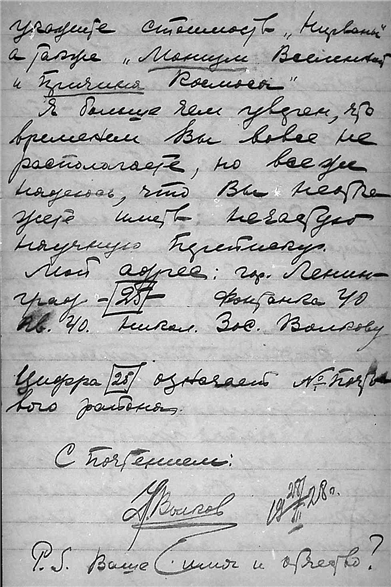 укажите стоимость „Нирваны"
а также „Монизм Вселенной
и Причина Космоса"
Я больше чем уверен, что
временем Вы вовсе не
располагаете, но все же
надеюсь, что Вы
жете иметь нечастую
научную переписку.
Мой адрес: гор. Ленин-
град - 28 - Фонтанка 40
кв. 40. Никол. Зос. Волкову
Цифра 28 означает № почто-
вого района.
С почтением:
НВолков 19 28 г.
P.S. Ваше имя и отчество?